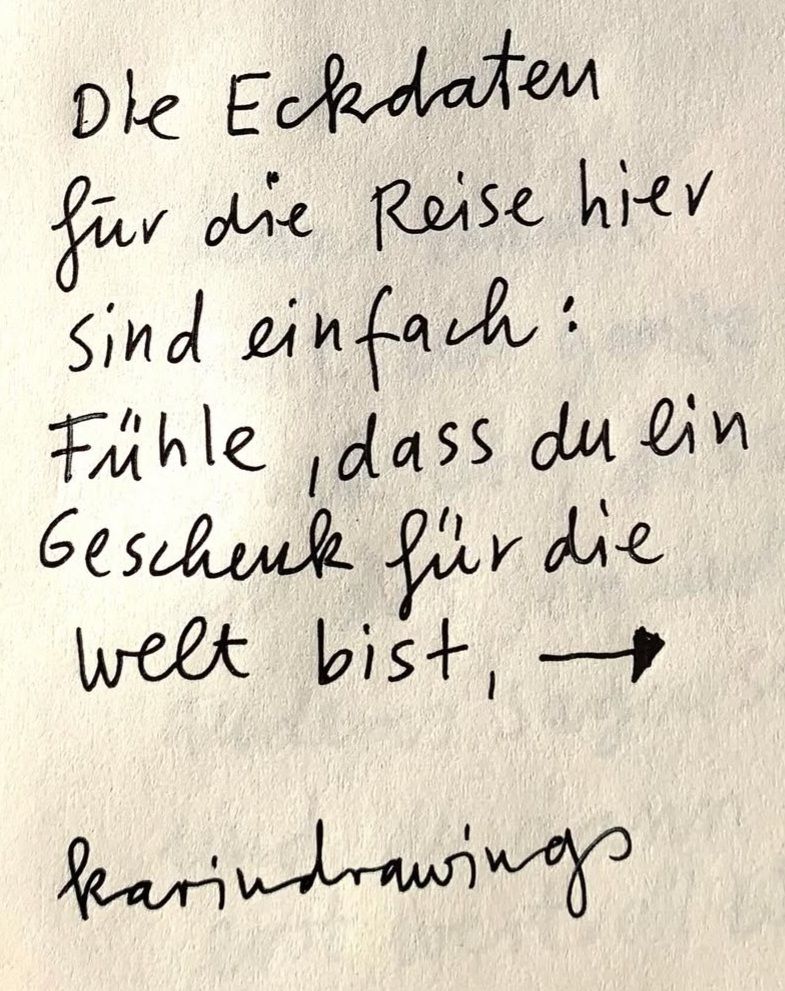 Die Eckdaten
für die Reise hier
sind einfach:
Fühle, dass du ein
Geschenk für die
Welt bist, →
karindrawings